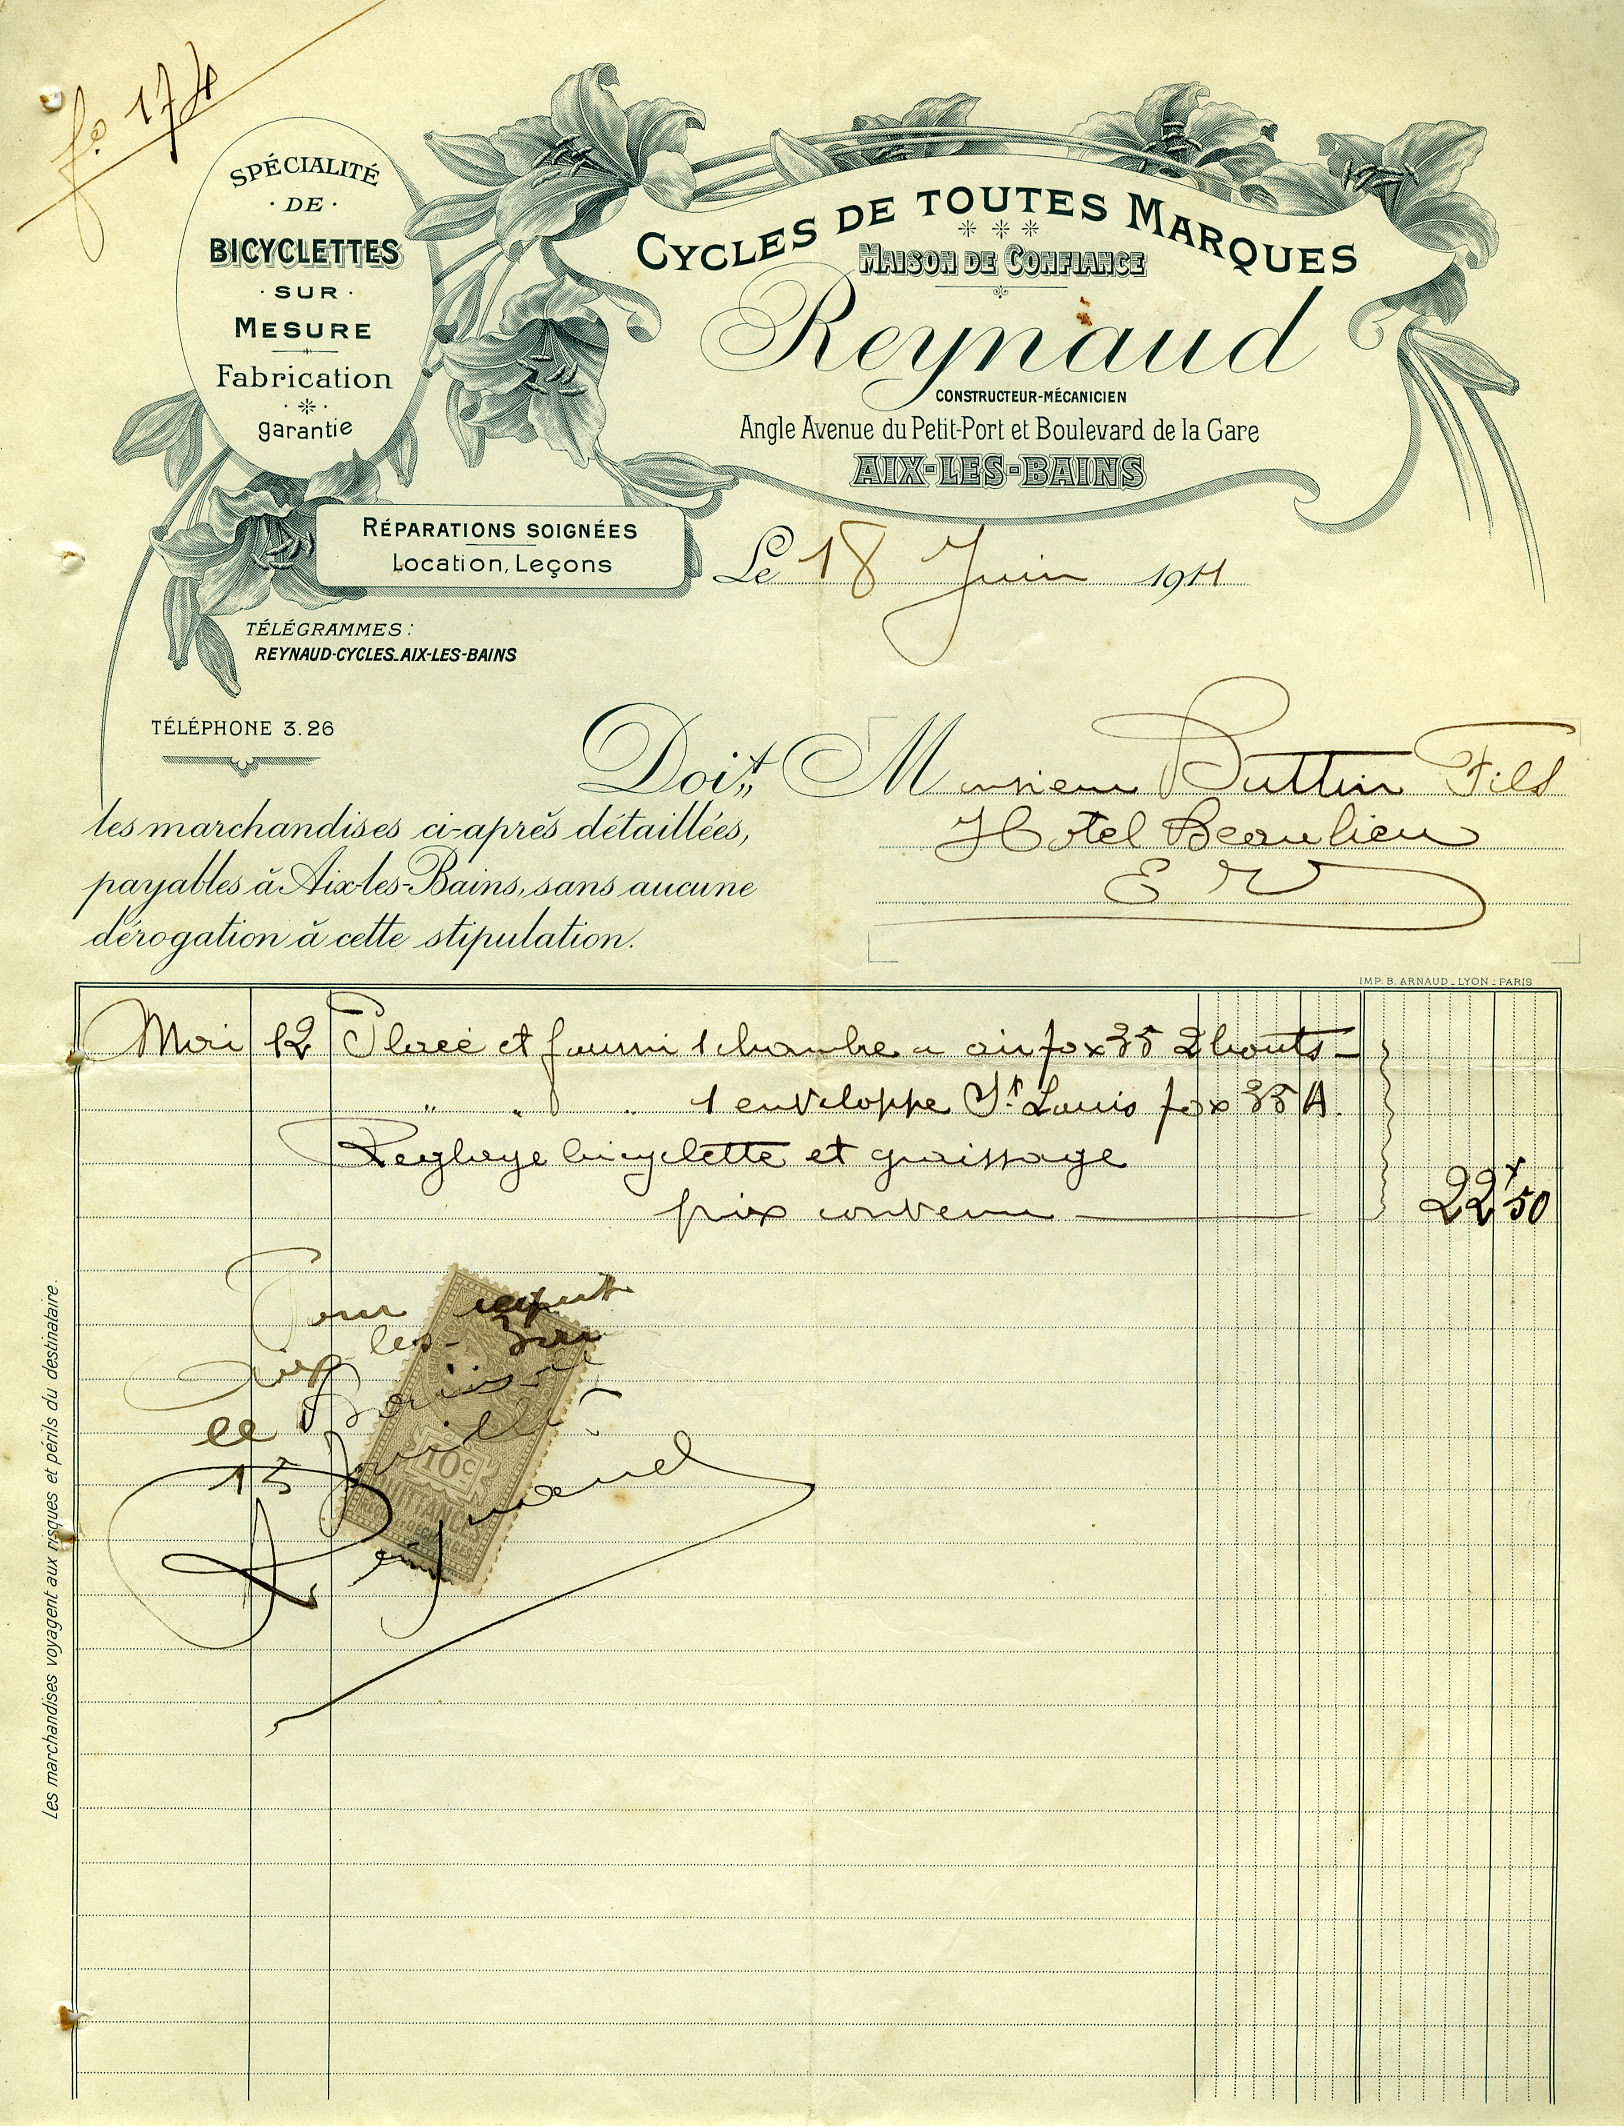 fo 174
SPÉCIALITÉ
· DE ·
BICYCLETTES
· SUR ·
MESURE
Fabrication
garantie
CYCLES DE TOUTES MARQUES
MAISON DE CONFIANCE
Reynaud
CONSTRUCTEUR-MÉCANICIEN
Angle Avenue du Petit-Port et Boulevard de la Gare
AIX-LES-BAINS
RÉPARATIONS SOIGNÉES
Location, Leçons
Le 18 Juin 1911
TÉLÉGRAMMES:
REYNAUD-CYCLES-AIX-LES-BAINS
TÉLÉPHONE 3.26
Doit Monsieur Buttin Fils
Hotel Beaulieu
E V
les marchandises ci-après détaillées,
payables à Aix-les-Bains, sans aucune
dérogation à cette stipulation.
IMP. B. ARNAUD - LYON - PARIS
Mai 12 Placé et fourni 1 chambre a air 70x35 2 bouts
" " " 1 enveloppe St Louis 70x35 A
Reglage bicyclette et graissage
prix convenu 22f50
Pour acquit
Aix-les-Bains
le
15 Juillet
Reynaud
10c
QUITTANCES
Les marchandises voyagent aux risques et périls du destinataire.